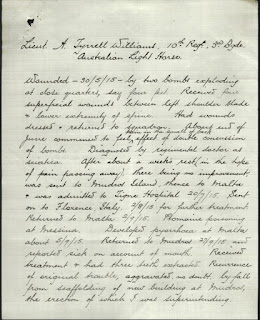 Lieut. A. Tyrrell Williams, 10th Regt, 3rd Bgde
Australian Light Horse.
Wounded - 30/5/15 - by two bombs exploding
at close quarters, say four feet. Received four
superficial wounds between left shoulder blade
& lower extremity of spine. Had wounds
dressed & returned to squadron. About end of
June commenced to feel effect of double concussion
of bombs. Diagnosed by regimental doctor as
sciatica. After about a weeks rest (in the hope
of pain passing away), there being no improvement,
was sent to Mudros Island, thence to Malta
& was admitted to Tigne Hospital
on to Florence, Italy, for further treatment
Returned to Malta 2/9/15. Ptomaine poisoning
at Messina. Developed pyorrhoea at Malta
about 5/9/15. Returned to Mudros 27/9/15 and
reported sick on account of mouth. Received
treatment & had three teeth extracted. Recurrence
of original trouble, aggravated, no doubt, by fall
from scaffolding of new building at Mudros,
the erection of which I was superintending.